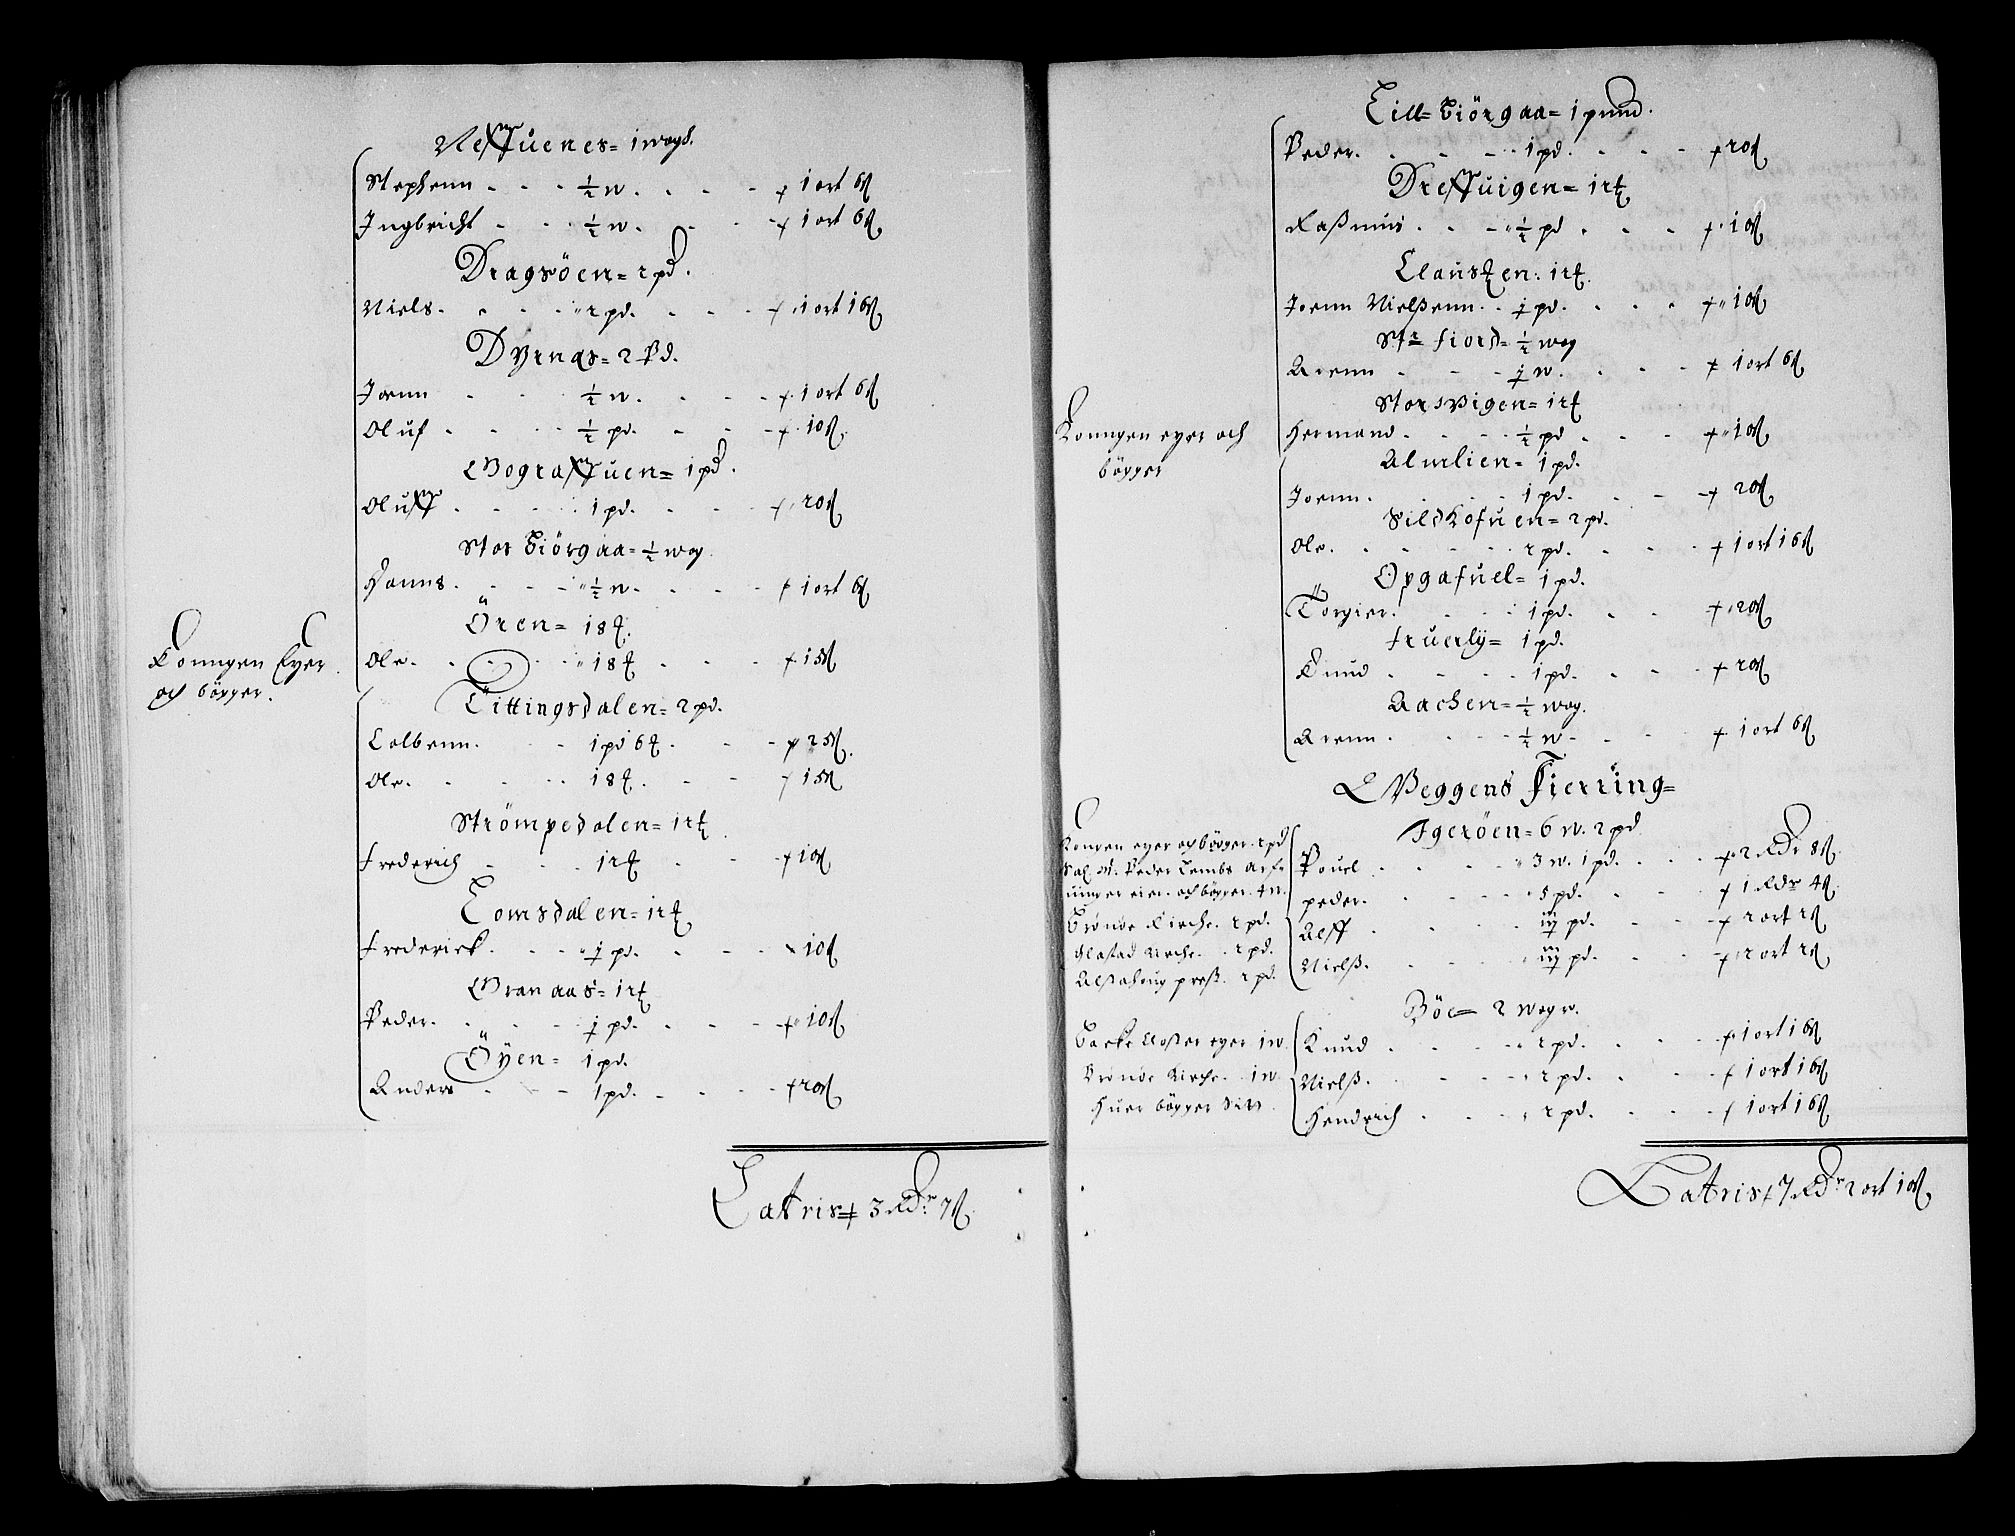 Neffuenes= 1 wogh.
Stephenn - - - ½ w. - - - + 1 ort 6 ß
Ingbricht - - - ½ w. - - - + 1 ort 6 ß
Dragsöen= 2 pd.
Niels. - - - 2 pd. - - - + 1 ort 16 ß
Dyrnes= 2 Pd.
Joenn - - - ½ w. - - - + 1 ort 6 ß
Oluf - - - ½ pd. - - - + 10 ß
Wograffuen= 1 pd.
Oluff - - - 1 pd. - - - + 20 ß
Stor Biörgaa= ½ wog
Hanns. - - - ½ w. - - - + 1 ort 6 ß
Ören= 18 ℔
Kongen Eyer
och böxger.
Ole. - - - 18 ℔ - - - + 15 ß
Tittingsdalen= 2 pd.
Colbenn. - - - 1 pd 6 ℔. - - - + 25 ß.
Ole. - - - 18 ℔. - - - + 15 ß
Strömpedalen= 12 ℔
Frederich - - - 12 ℔ - - - + 10 ß
Tomsdalen= 12 ℔
Frederick. - - - ½ pd. - - - + 10 ß
Granaas= 12 ℔
Peder. - - - ½ pd. - - - + 10 ß
Öÿen= 1 pd.
Anders - - - 1 pd. - - - + 20 ß
Latris + 3 Rdr 7 ß
Lill= Biörgaa= 1 pund.
Peder. - - - 1 pd. - - - + 20 ß
Dreffuigen= 12 ℔
Raßmus. - - - ½ pd - - - + 10 ß
Claussen: 12 ℔
Joenn Nielßenn. - ½ pd. - - - + 10 ß
Str fiord= ½ wog
Arenn - - - ½ w. - - - + 1 ort 6 ß
Storsvigen= 12 ℔
Kongen eyer och
böxger
Hermand. - - - ½ pd - - - + 10 ß
Almlien= 1 pd.
Joenn. - - - 1 pd. - - - + 20 ß
Sildkofuen= 2 pd.
Ole. - - - 2 pd. - - - + 1 ort 16 ß
Opgafuel= 1 pd.
Torgier. - - - 1 pd. - - - + 20 ß
Fruerlÿ= 1 pd.
Knud - - - 1 pd. - - - + 20 ß
Aachen= ½ wog.
Arenn - - - ½ w - - - + 1 ort 6 ß
Weggens Fierring=
Igeröen= 6 w. 2 pd
Kongen eyer och böxger. 2 pd
Sal. M. Peder Lembs arf-
uinger eier och böxger. 4 w.
Brönöe Kirche. 2 pd.
Alstad Kirche. 2 pd.
Alstahoug prest. 2 pd.
Pouel - - - 3 w. 1 pd. - - - + 2 Rdr 8 ß
Peder. - - - 5 pd. - - - + 1 Rdr 4 ß
Alff - - - pd. - - - + 2 ort 2 ß
Nielß. - - - pd. - - - + 2 ort 2 ß
Böe= 2 woger.
Backe Closter eyer 1 w.
Brönöe Kirche. 1 w.
Huer böxger Sit
Knud - - - 2 pd. - - - + 1 ort 16 ß
Nielß. - - - 2 pd. - - - + 1 ort 16 ß
Hendrich - - - 2 pd. - - - + 1 ort 16 ß
Latris + 7 Rdr 2 ort 10 ß